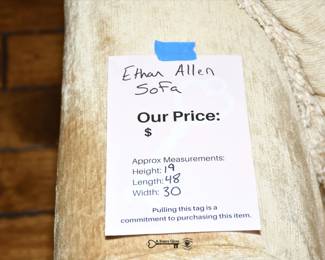 Ethan Allen
Sofa
Our Price:
$
Approx Measurements:
Height: 19
Length: 48
Width: 30
Pulling this tag is a
commitment to purchasing this item.